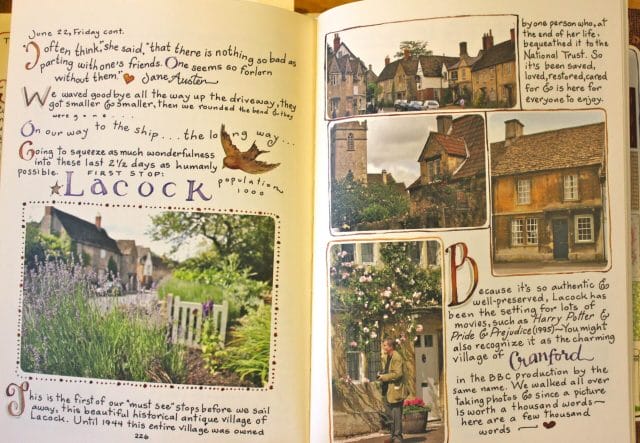 June 22, Friday cont.
"I often think," she said, "that there is nothing so bad as
parting with one's friends. One seems so forlorn
without them." ♥ Jane Austen
We waved goodbye all the way up the driveway, they
got smaller & smaller, then we rounded the bend & they
were gone...
On our way to the ship... the long way...
Going to squeeze as much wonderfulness
into these last 2½ days as humanly
possible. FIRST STOP:
LACOCK
population
1000
This is the first of our "must see" stops before we sail
away, this beautiful historical antique village of
Lacock. Until 1944 this entire village was owned
226
by one person who, at
the end of her life,
bequeathed it to the
National Trust. So
it's been saved,
loved, restored, cared
for & is here for
everyone to enjoy.
Because it's so authentic &
well-preserved, Lacock has
been the setting for lots of
movies, such as Harry Potter &
Pride & Prejudice (1995)~You might
also recognize it as the charming
village of Cranford
in the BBC production by the
same name. We walked all over
taking photos & since a picture
is worth a thousand words—
here are a few thousand
words — ♥